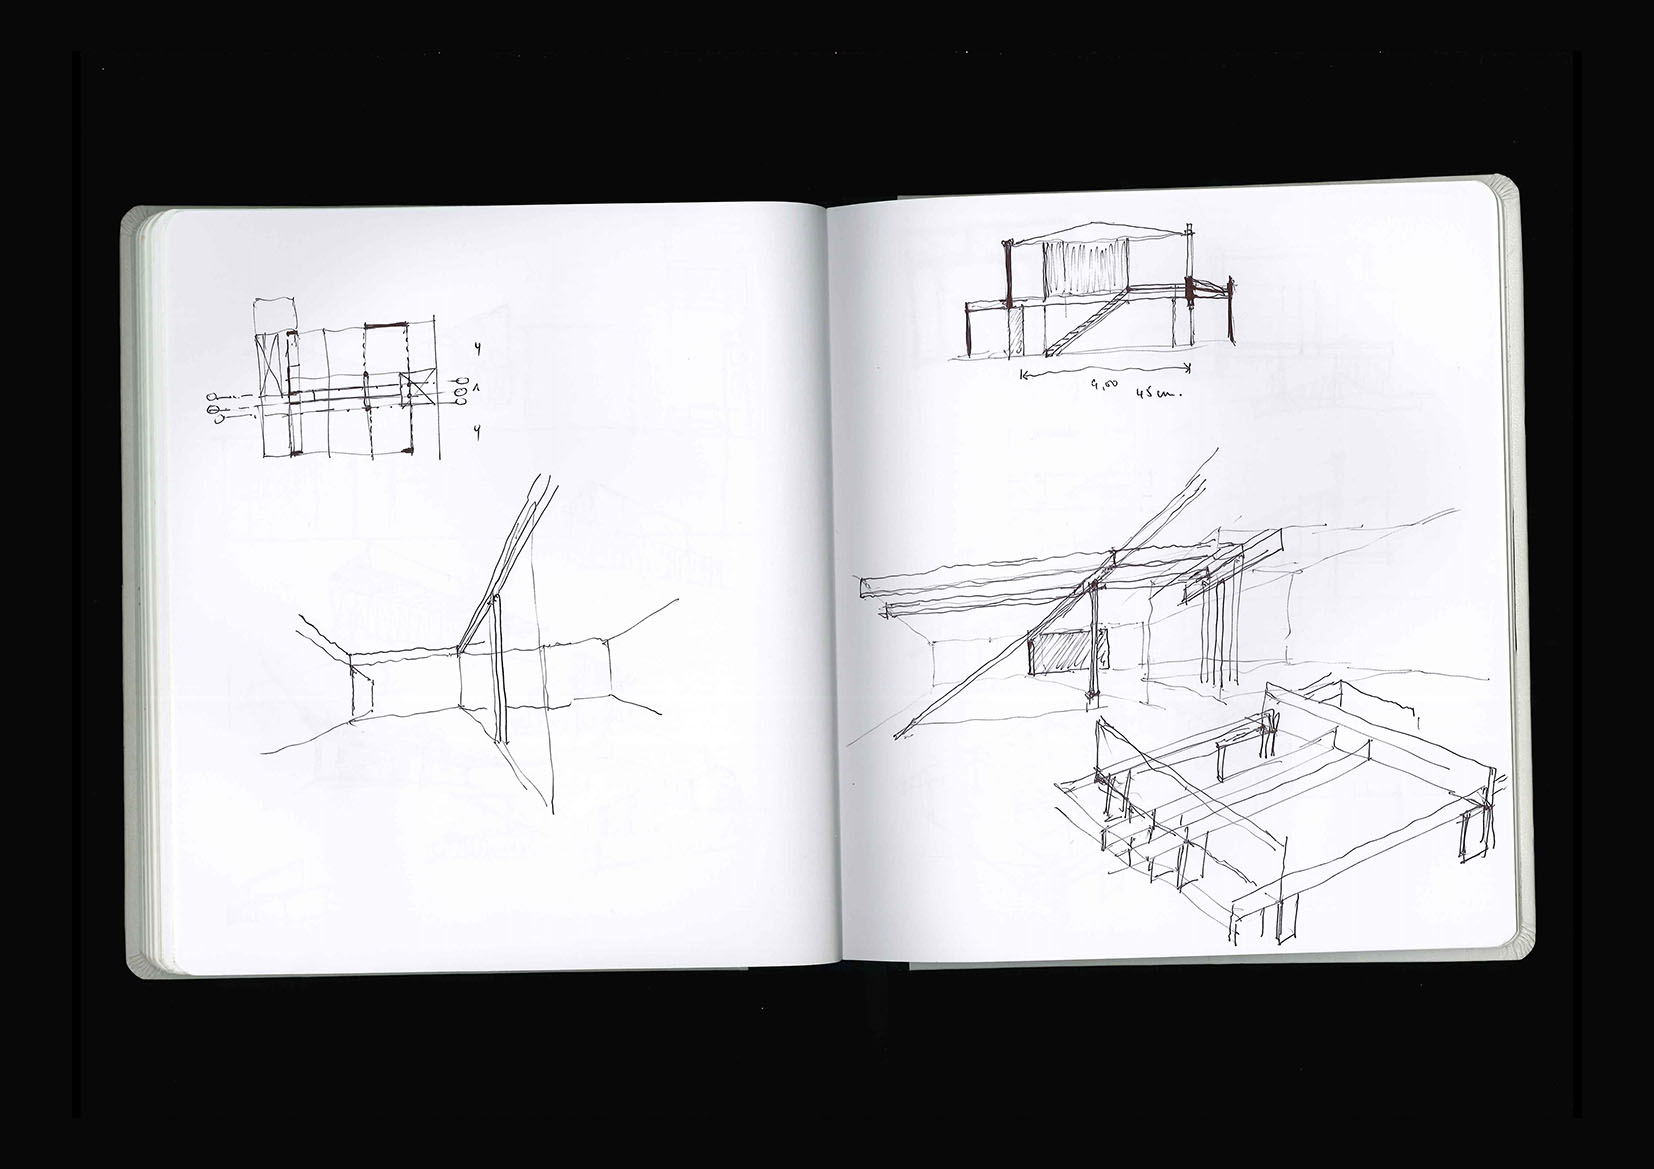 4
1
4
9,00
45 cm.